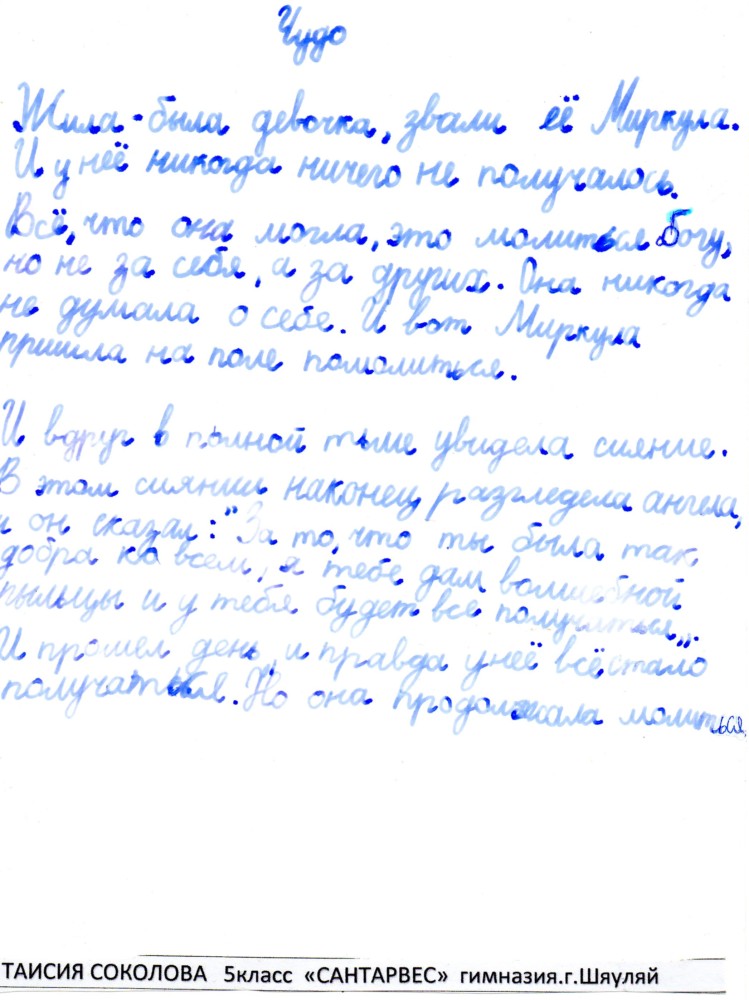 Чудо
Жила-была девочка, звали её Миркула.
И у неё никогда ничего не получалось.
Всё, что она могла, это молиться Богу,
но не за себя, а за других. Она никогда
не думала о себе. И вот Миркула
пришла на поле помолиться.
И вдруг в полной тьме увидела сияние.
В этом сиянии наконец разгледела ангела,
и он сказал: "За то, что ты была так
добра ко всем, я тебе дам волшебной
пыльцы и у тебя будет все получаться".
И прошел день, и правда у неё всё стало
получаться. Но она продолжала молиться.
ТАИСИЯ СОКОЛОВА 5класс «САНТАРВЕС» гимназия.г.Шяуляй